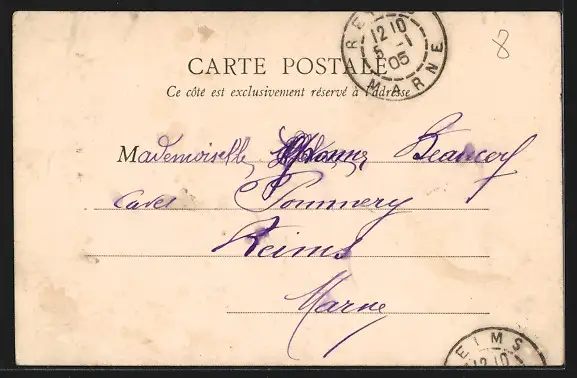 REIMS
12 10
5 -1
05
MARNE
8
CARTE POSTALE
Ce côté est exclusivement réservé à l'adresse
Mademoiselle Yvonne
Caves Pommery
Reims
Marne
EIMS
12 10